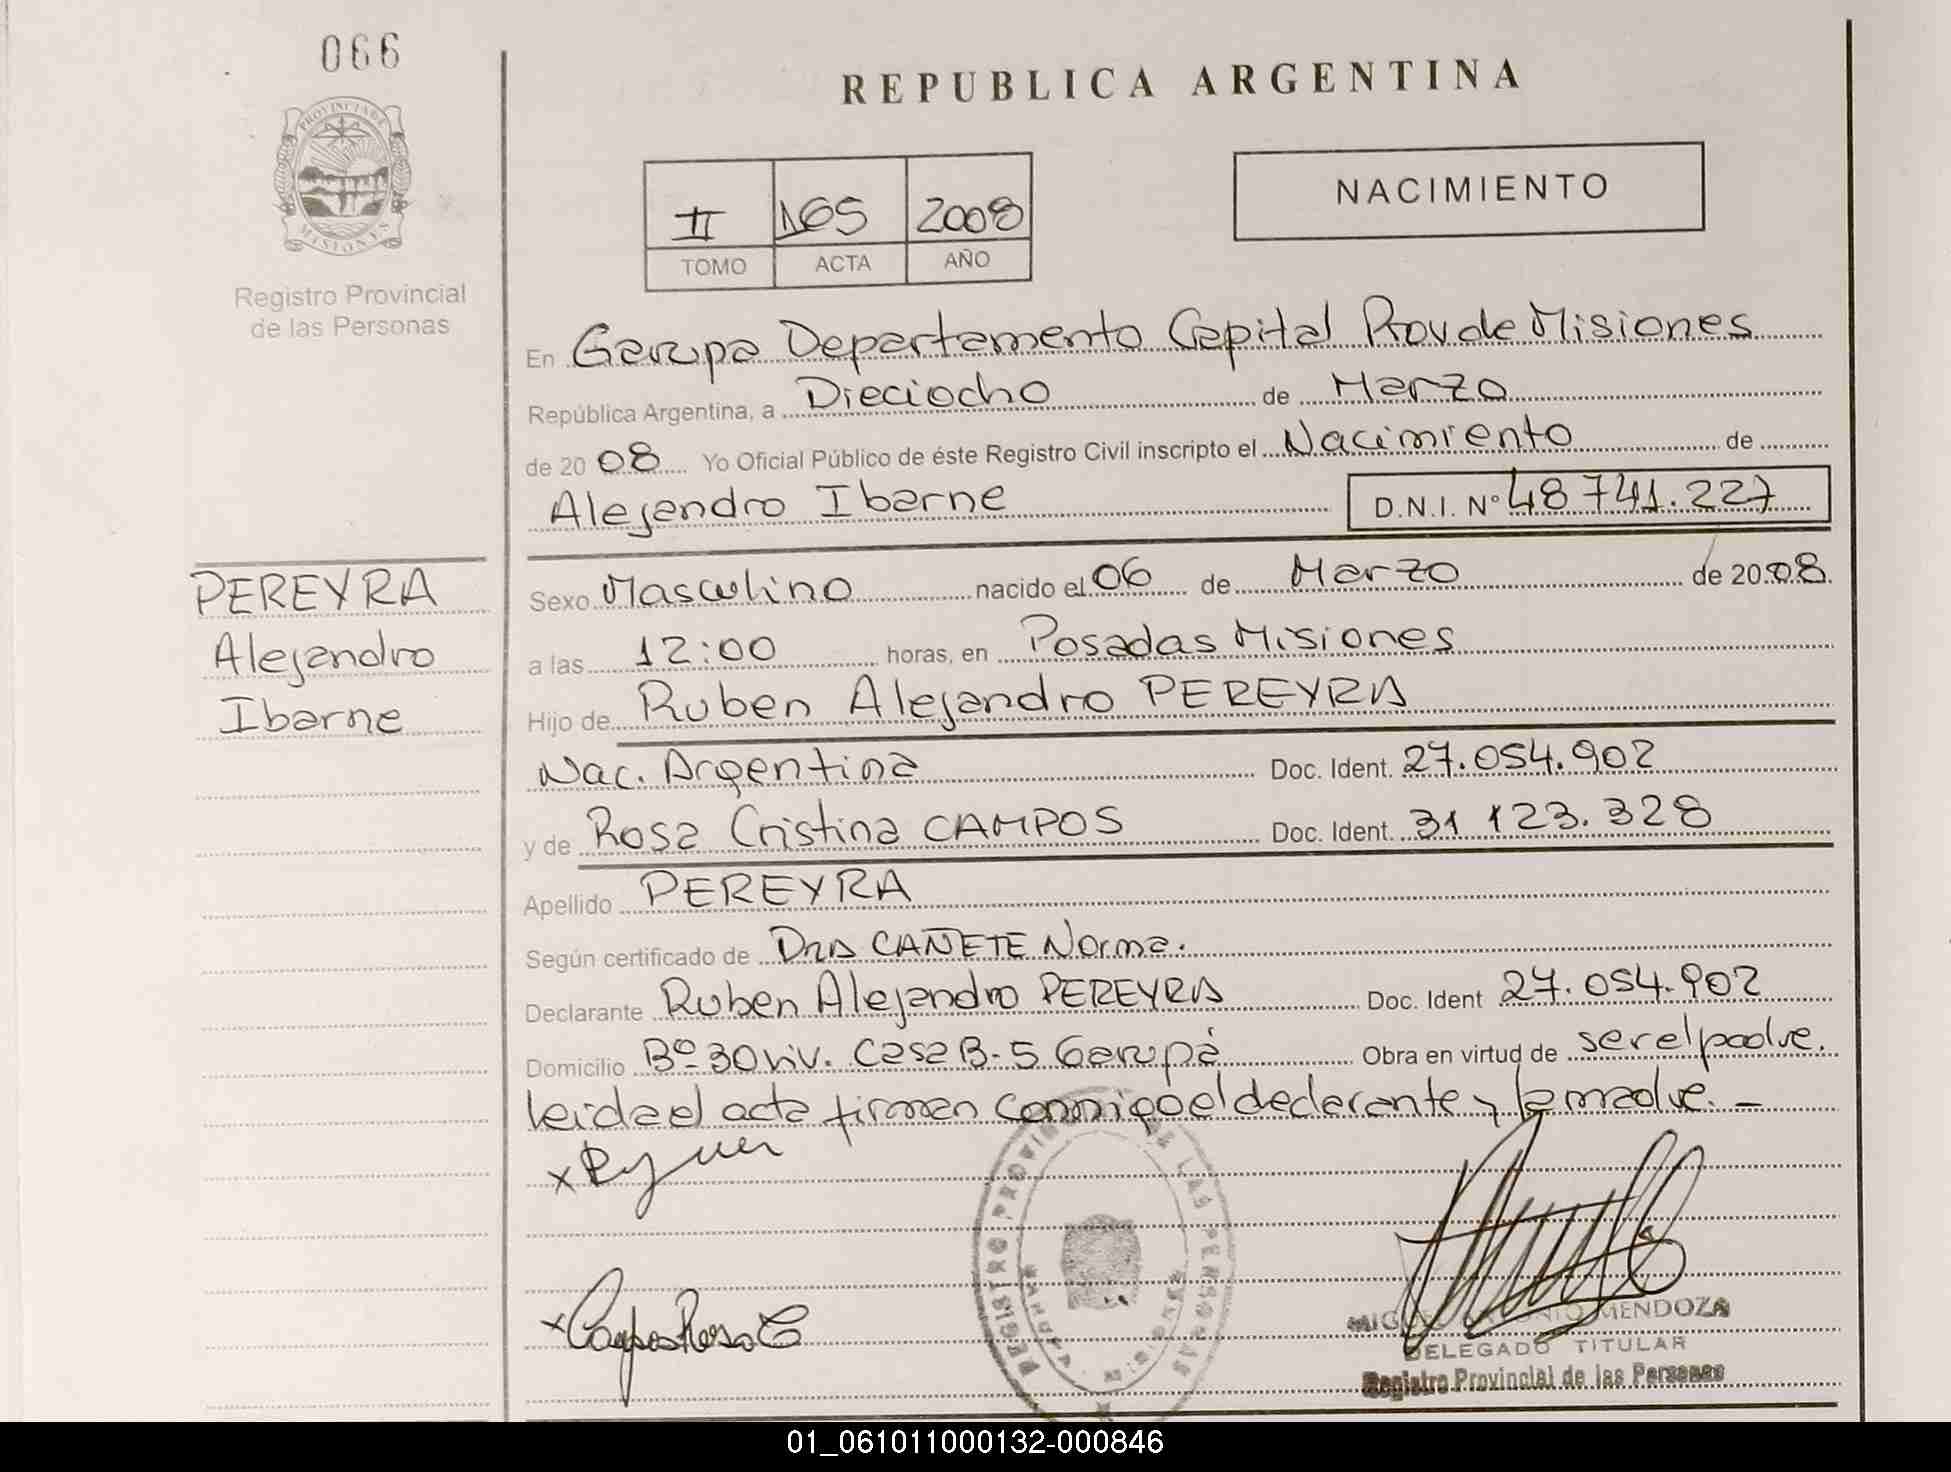 066
REPUBLICA ARGENTINA
PROVINCIA DE
MISIONES
Registro Provincial
de las Personas
II 165 2008
TOMO ACTA AÑO
NACIMIENTO
En Garupa Departamento Capital Prov de Misiones
República Argentina, a Dieciocho de Marzo
de 20 08 Yo Oficial Público de éste Registro Civil inscripto el Nacimiento de
Alejandro Ibarne D.N.I. Nº 48 741.227
PEREYRA
Alejandro
Ibarne
Sexo Masculino nacido el 06 de Marzo de 20 08.
a las 12:00 horas, en Posadas Misiones
Hijo de Ruben Alejandro PEREYRA
Nac. Argentina Doc. Ident. 27.054.902
y de Rosa Cristina CAMPOS Doc. Ident. 31 123.328
Apellido PEREYRA
Según certificado de Dra CAÑETE Norma.
Declarante Ruben Alejandro PEREYRA Doc. Ident 27.054.902
Domicilio Bº 30 viv. Casa B-5 Garupá Obra en virtud de ser el padre.
leida el acta firman conmigo el declarante y la madre. —
x
x Campos Rosa C
REGISTRO PROVINCIAL DE LAS PERSONAS
MENDOZA
DELEGADO TITULAR
Registro Provincial de las Personas
01_061011000132-000846